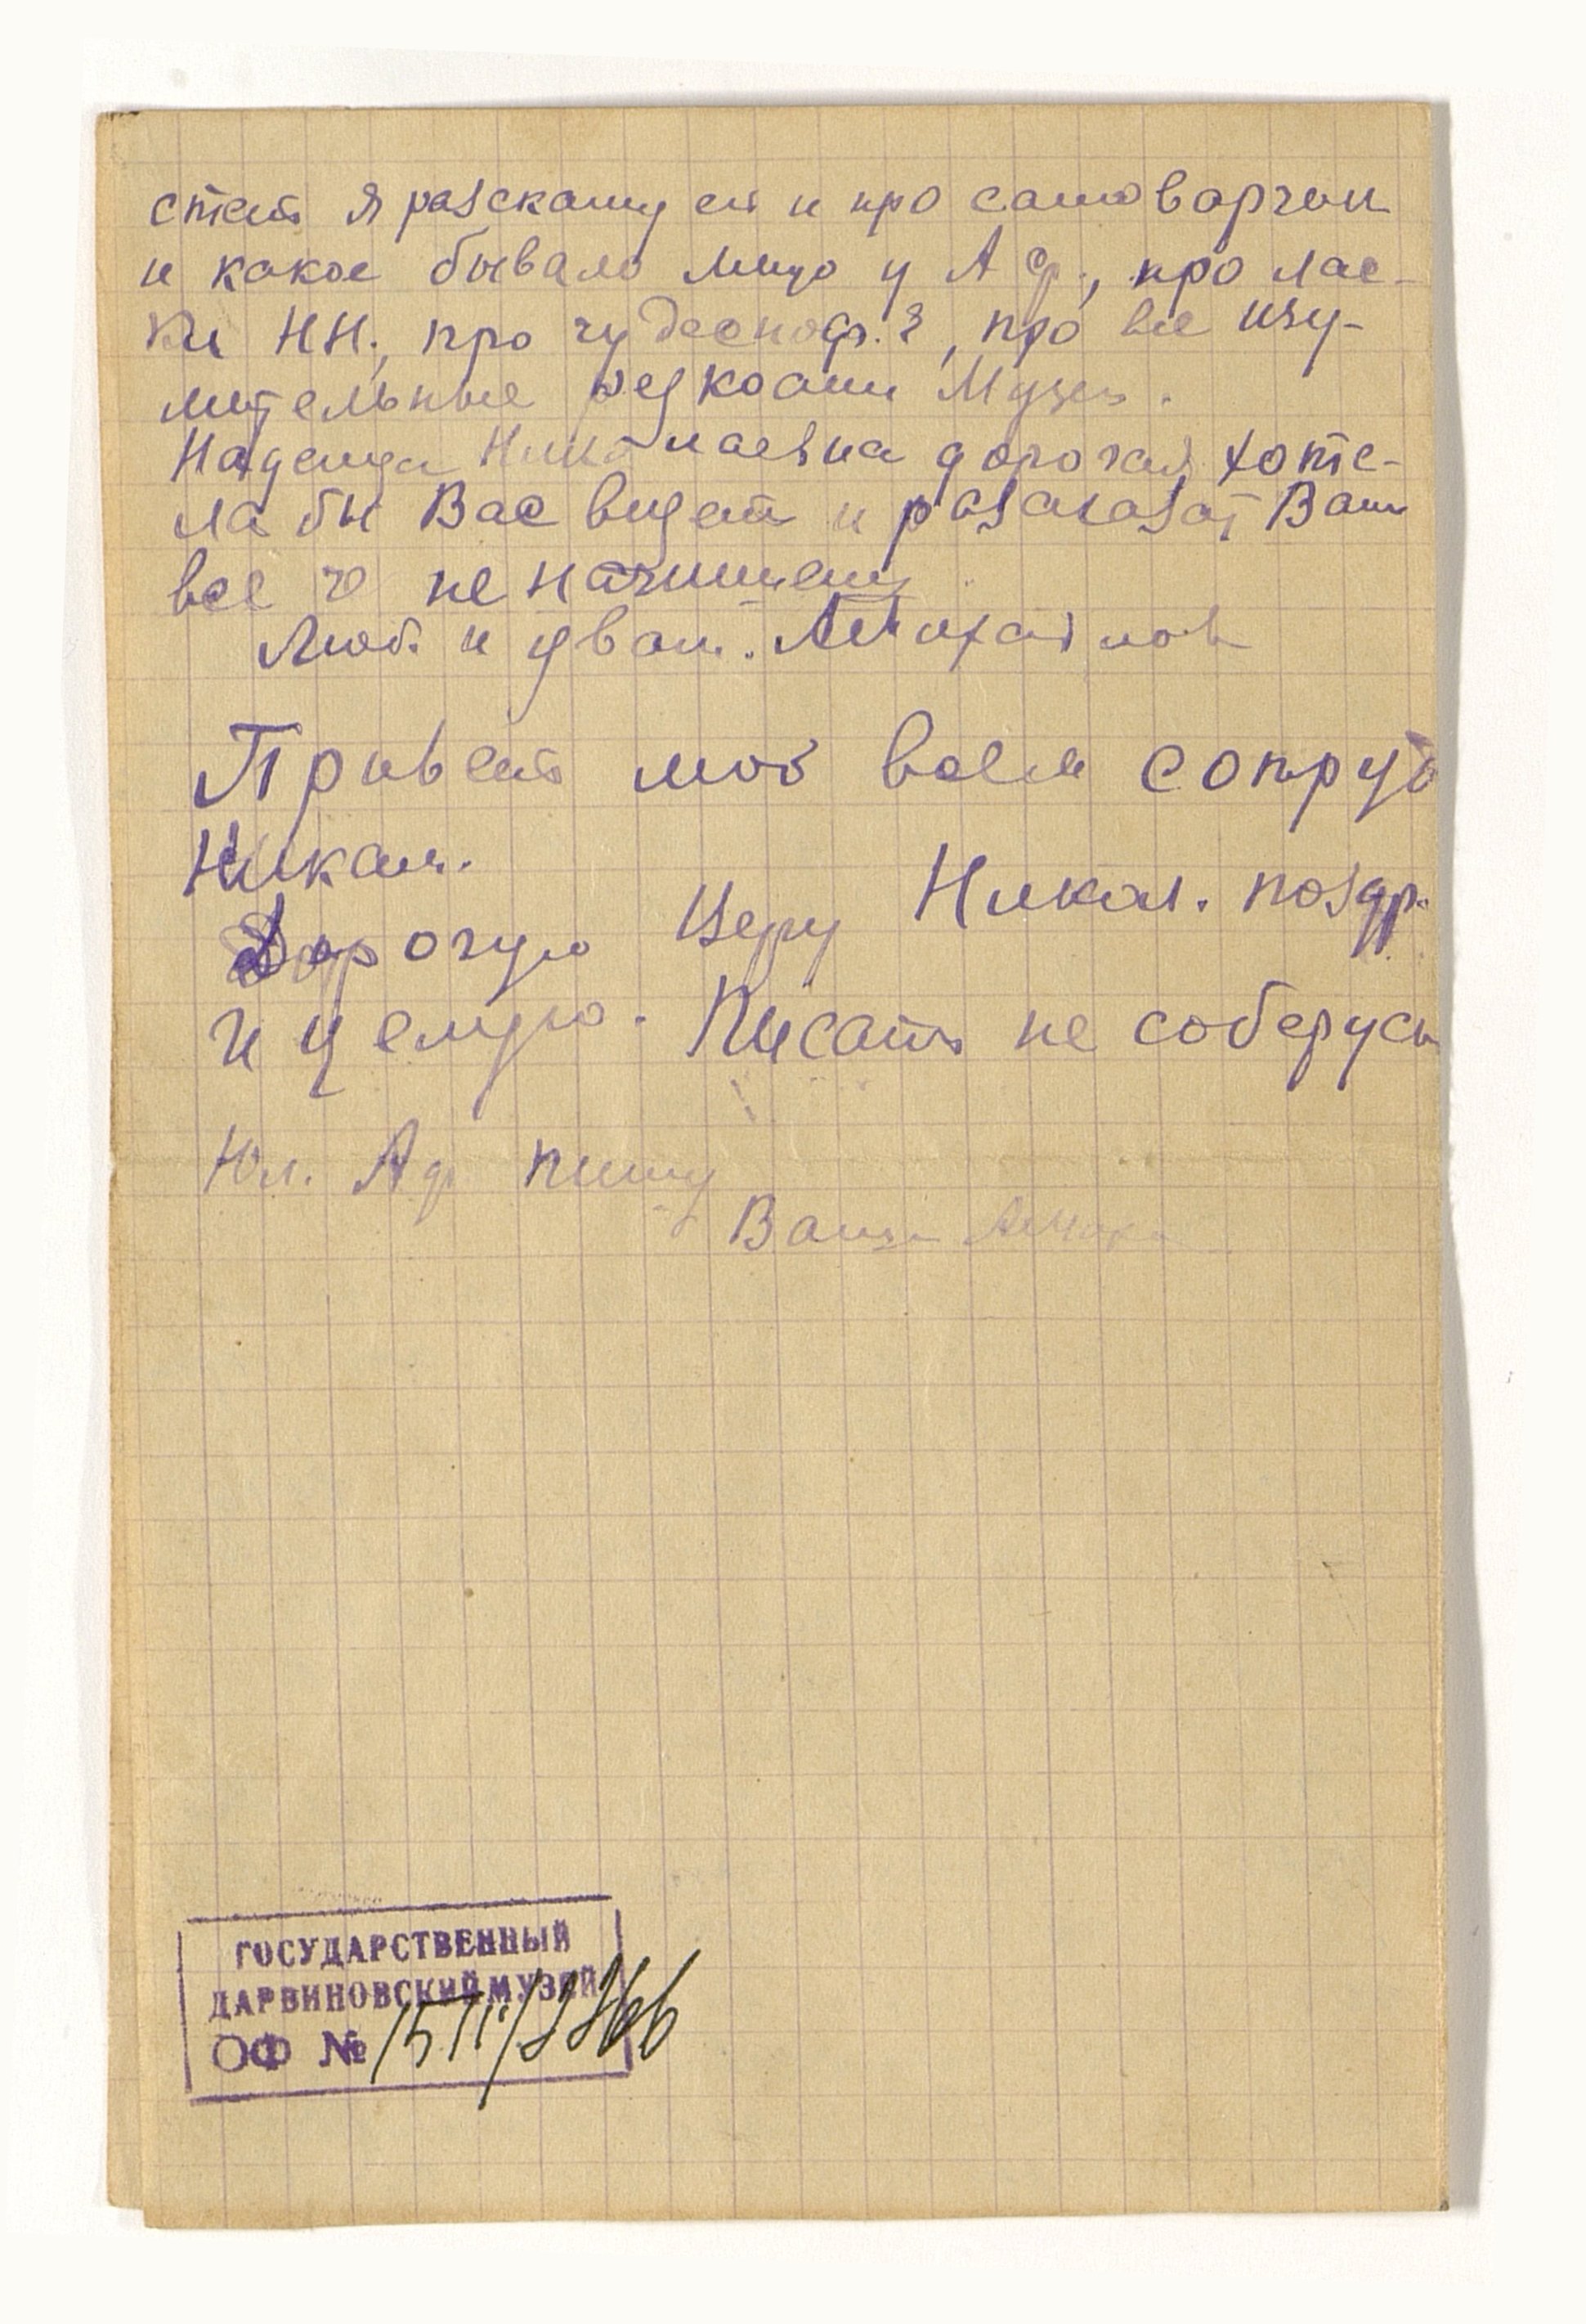 стет я разскажу ей и про самоварчик
и какое бывало лицо у А Ф., про лас-
ки НН., про чудесно, про все изу-
мительные редкости Музея.
Надежда Николаевна дорогая хоте-
ла бы Вас видеть и разсказат Вам
все ч не напишешь
Люб. и уваж.
Привет мой всем сотруд
никам.
Дорогую Веру Никол. поздр.
и целую. Писать не соберусь
Юл. А пишу
Ваша
ГОСУДАРСТВЕННЫЙ
ДАРВИНОВСКИЙ МУЗЕЙ
ОФ №